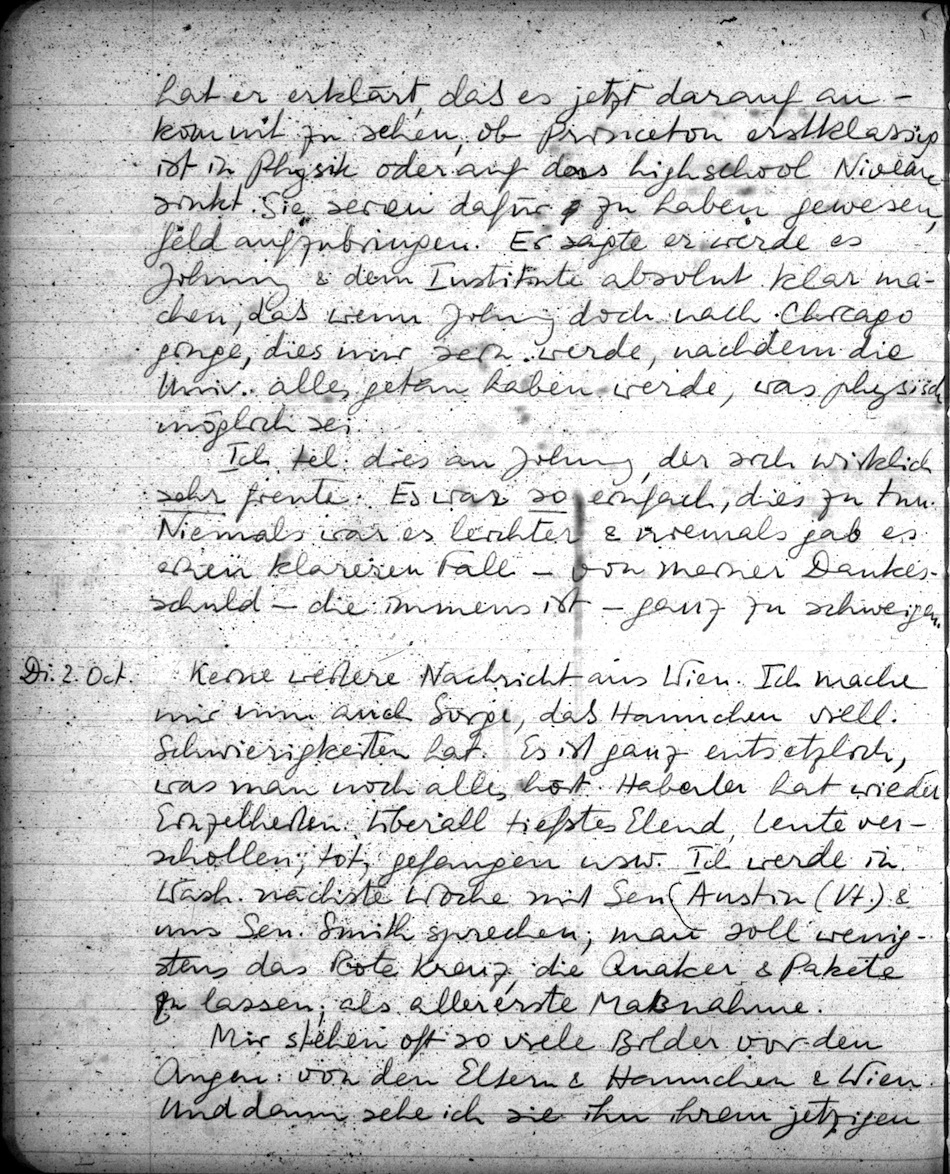 hat er erklärt, das es jetzt darauf an-
kommt zu sehen, ob Princeton erstklassig
ist in Physik oder auf das highschool Niveau
sinkt. Sie seien dafür zu haben gewesen,
Geld aufzubringen. Er sagte er werde es
Johnny & dem Institute absolut klar ma-
chen, das wenn Johnny doch nach Chicago
ginge, dies nur sein werde, nachdem die
Univ. alles getan haben werde, was physisch
möglich sei.
Ich tel. dies an Johnny, der sich wirklich
sehr freute. Es war so einfach, dies zu tun.
Niemals war es leichter & niemals gab es
einen klareren Fall – von meiner Dankes-
schuld – die immens ist – ganz zu schweigen.
Di. 2. Oct. Keine weitere Nachricht aus Wien. Ich mache
mir nun auch Sorge, das Hannchen viell.
Schwierigkeiten hat. Es ist ganz entsetzlich,
was man noch alles hört. Haberler hat wieder
Einzelheiten. Überall tiefstes Elend, Leute ver-
schollen, tot, gefangen usw. Ich werde in
Wash. nächste Woche mit Sen. Austin (Vt.) &
Sen. Smith sprechen; man soll wenig-
stens das Rote Kreuz, die Quaker & Pakete
zu lassen, als allererste Maßnahme.
Mir stehen oft so viele Bilder vor den
Augen: von den Eltern & Hannchen & Wien.
Und dann sehe ich sie ihn ihrem jetzigen